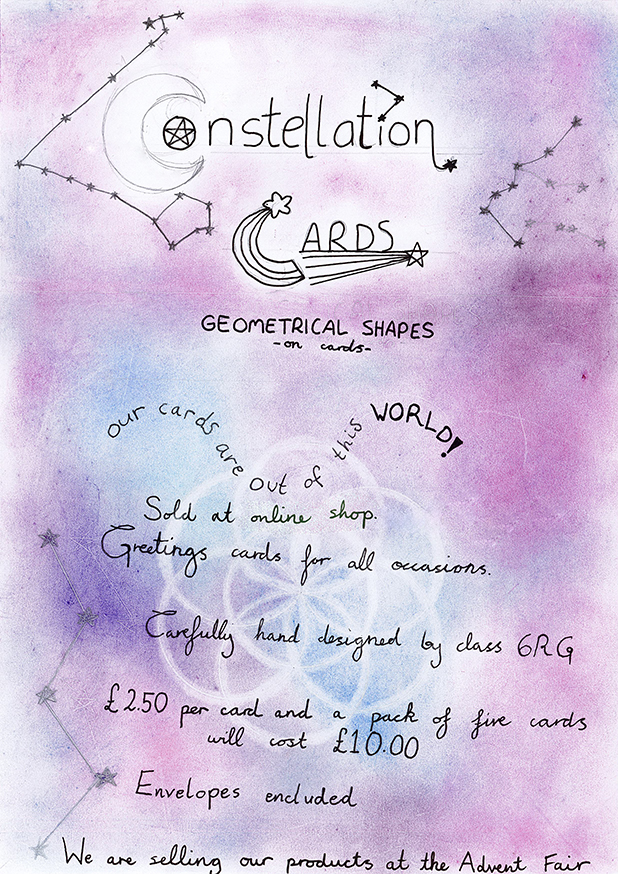 Constellation
CARDS
GEOMETRICAL SHAPES
-on cards-
our cards are out of this WORLD!
Sold at online shop.
Greetings cards for all occasions.
Carefully hand designed by class 6RG
£2.50 per card and a pack of five cards
will cost £10.00
Envelopes encluded
We are selling our products at the Advent Fair